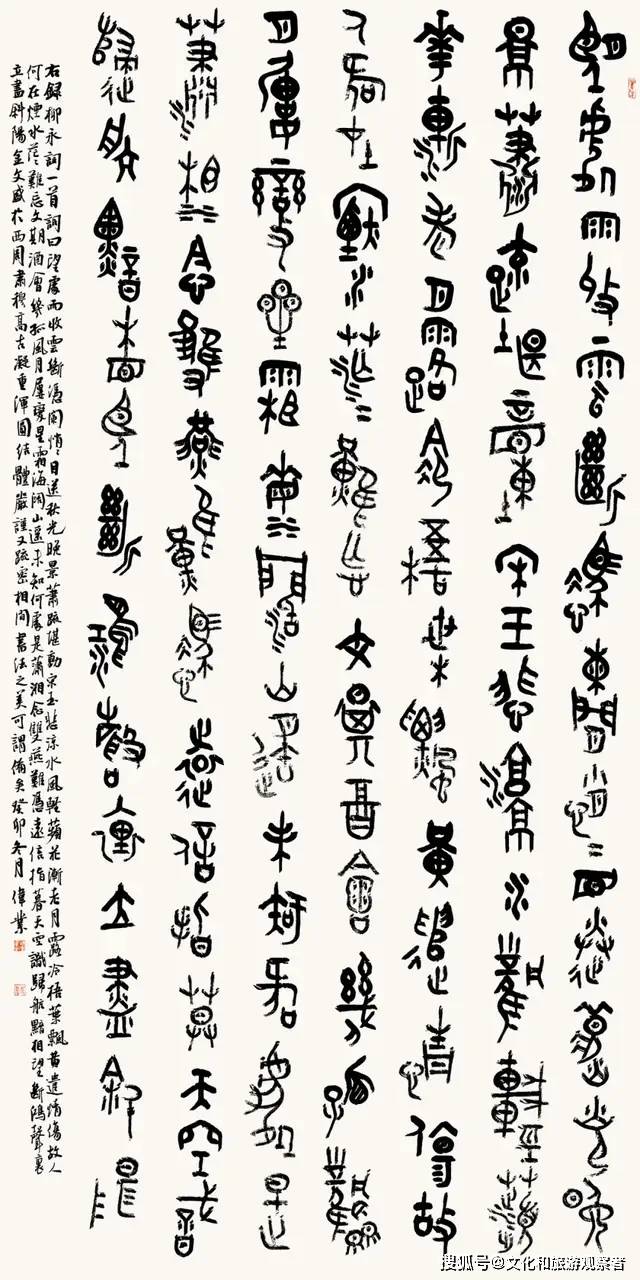 望處雨收雲斷憑闌悄〻目送秋光晚
景蕭疏堪動宋玉悲涼水風輕蘋
花漸老月露冷梧葉飄黃遣情傷故
人何在煙水茫〻難忘文期酒會幾孤風
月屢變星霜〻海闊山遙未知何處是
瀟湘〻念雙燕難憑遠信指暮天空識
歸航黯相望斷鴻聲裏立盡斜陽
右録柳永詞一首詞曰望處雨收雲斷憑闌悄〻目送秋光晚景蕭疏堪動宋玉悲涼水風輕蘋花漸老月露冷梧葉飄黃遣情傷故人
何在煙水茫難忘文期酒會幾孤風月屢變星霜海闊山遙未知何處是瀟湘念雙燕難憑遠信指暮天空識歸航黯相望斷鴻聲裏
立盡斜陽金文盛於西周肅穆高古凝重渾圓結體嚴謹又疏密相間書法之美可謂備矣癸卯冬月偉業
搜狐号@文化和旅游观察者